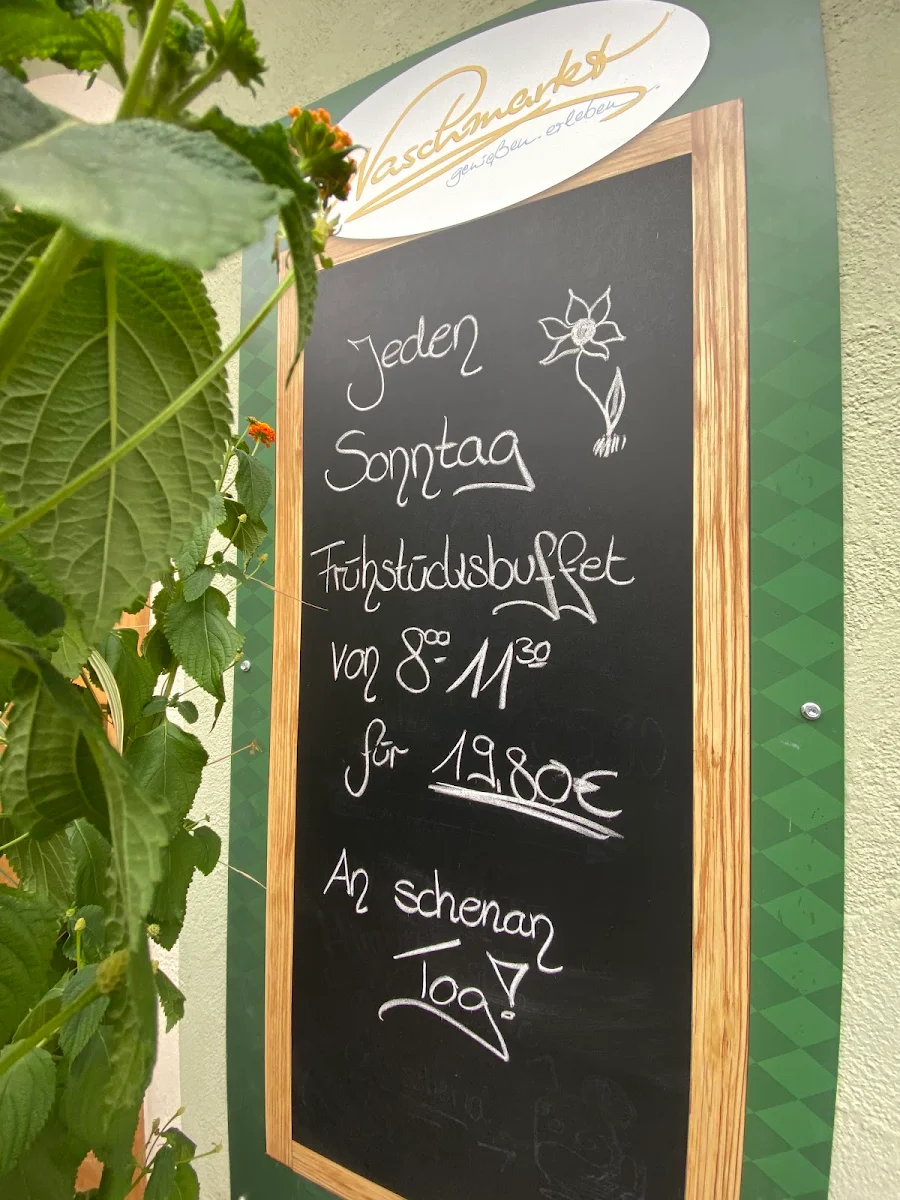 Naschmarkt
genießen. erleben.
Jeden
Sonntag
Frühstücksbuffet
von 8⁰⁰-11³⁰
für 19,80€
An schenan
Tog!